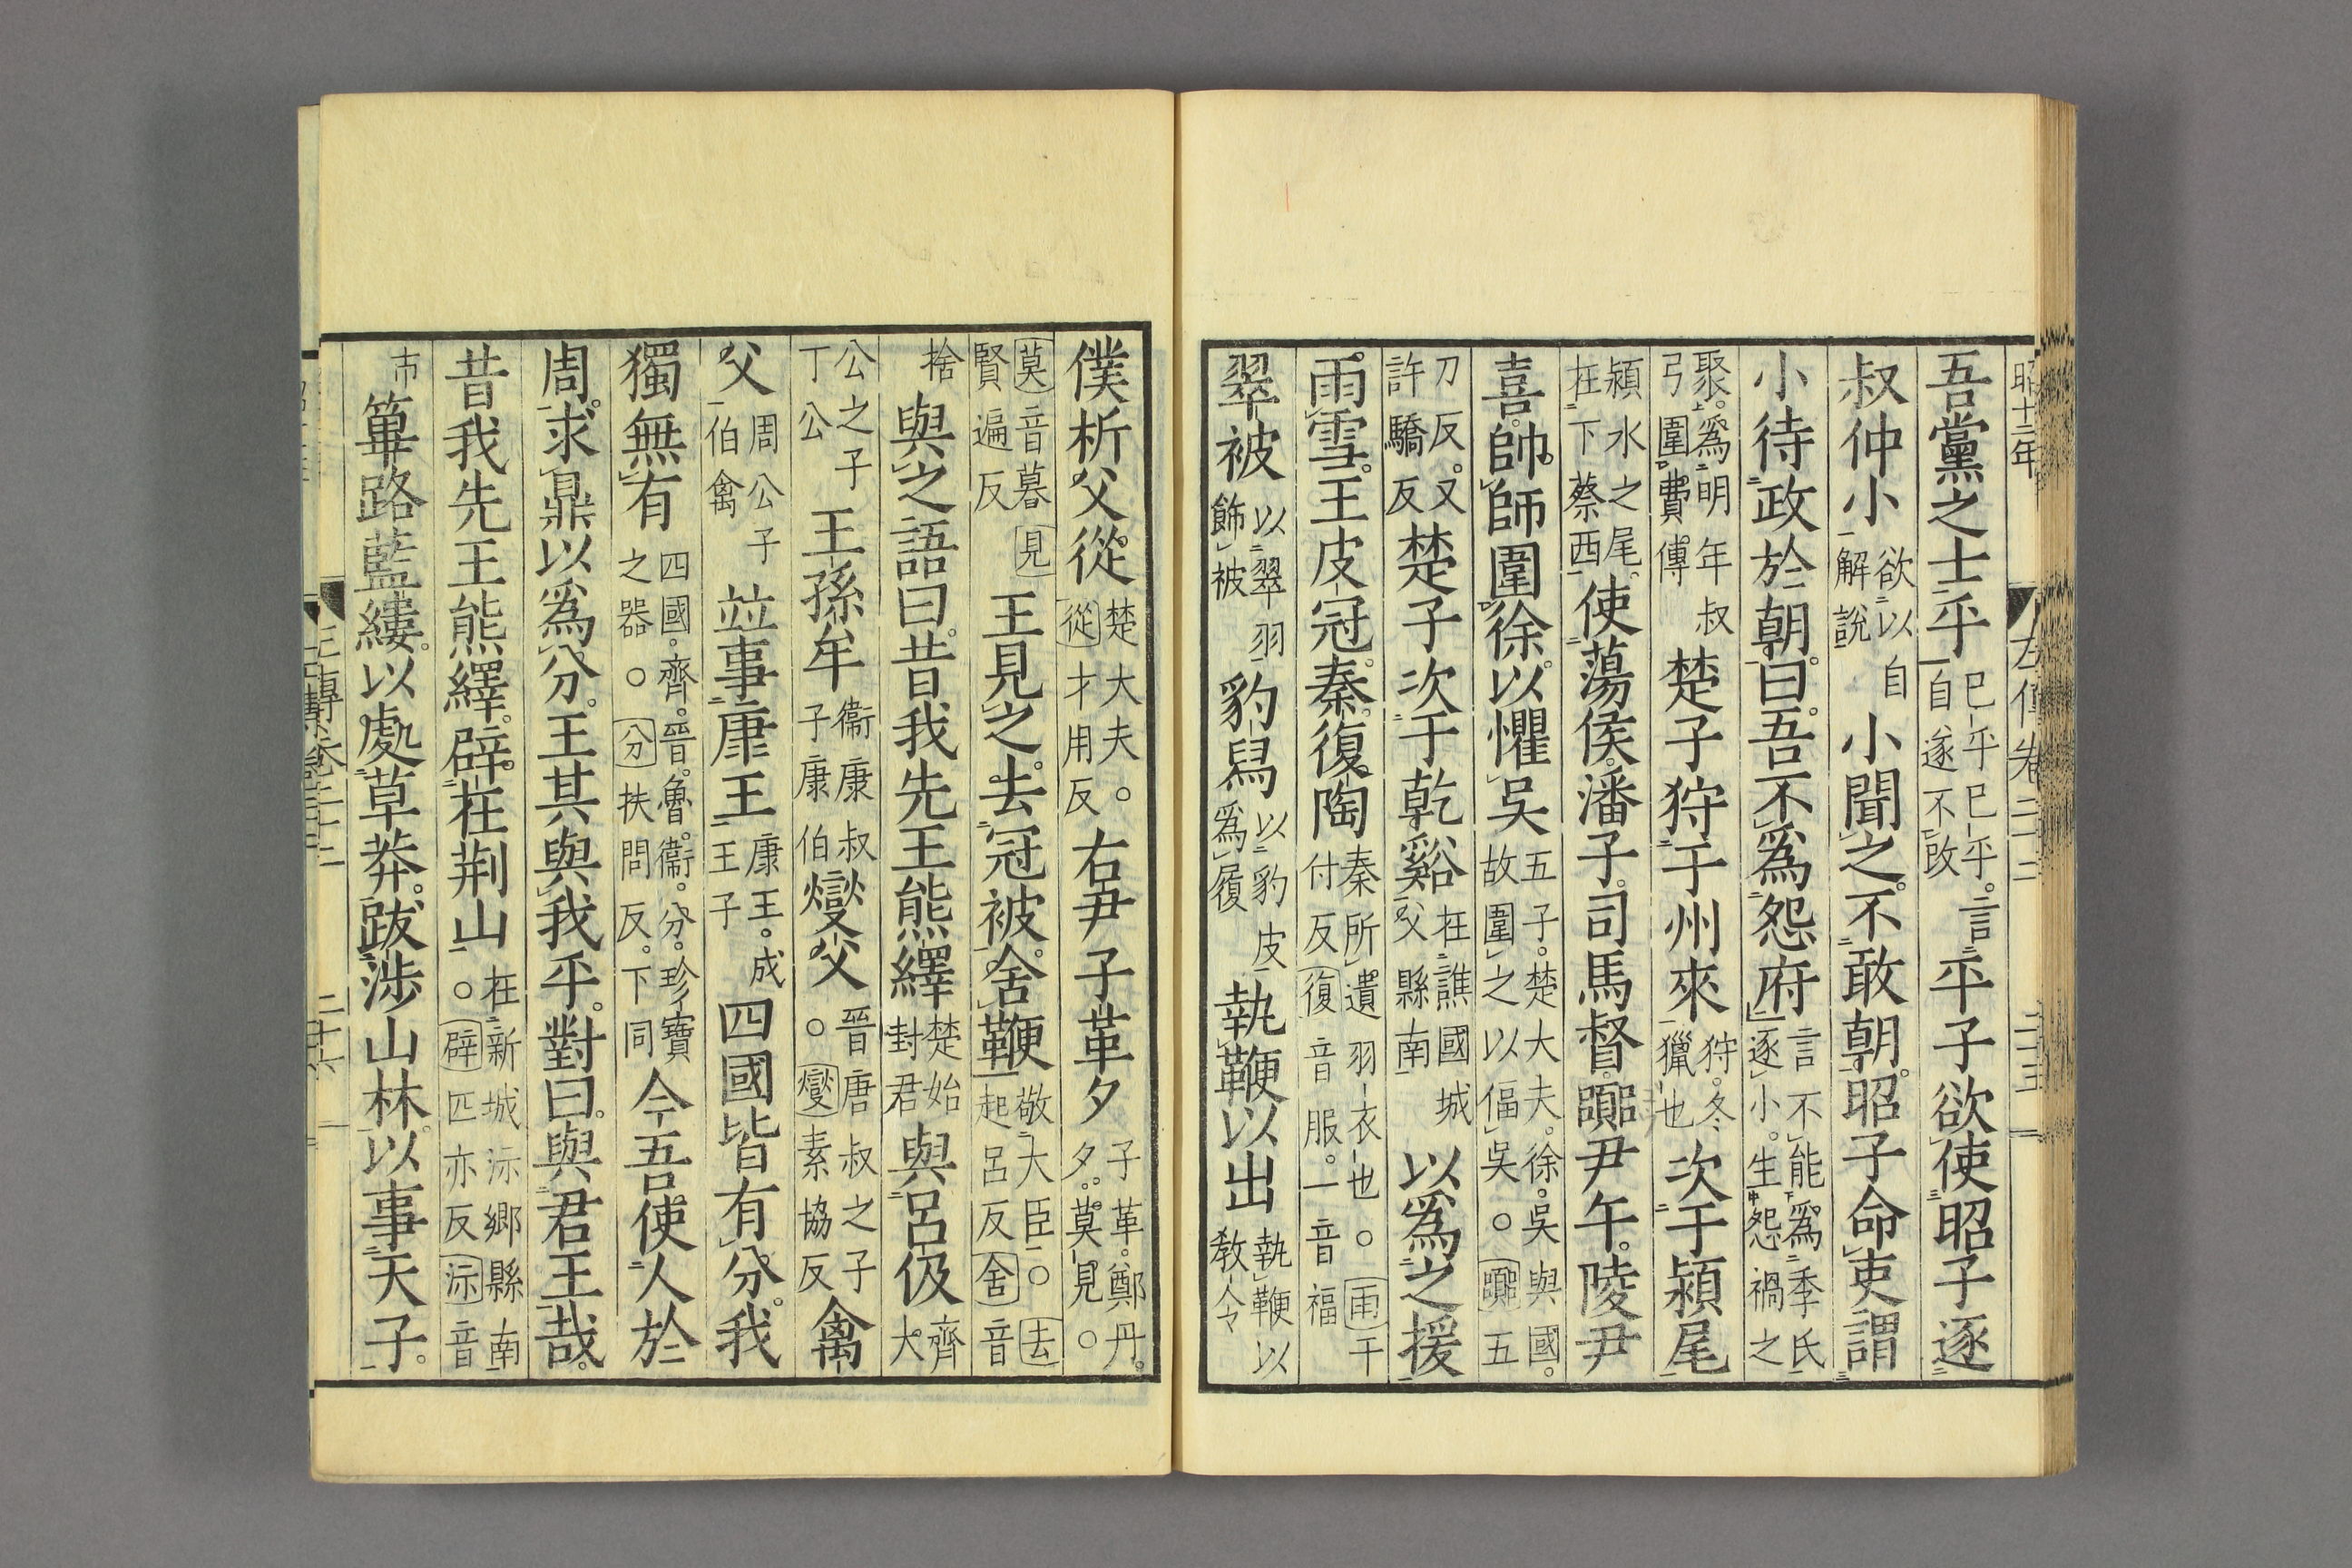 昭十二年 左傳卷二十二 二十五
吾黨之士乎巳乎巳乎言自遂不改平子欲使昭子逐
叔仲小欲以自解說小聞之不敢朝昭子命吏謂
小待政於朝曰吾不爲怨府言不能爲季氏逐小生怨禍之
聚爲明年叔弓圍費傳楚子狩于州來狩冬獵也次于潁尾
潁水之尾在下蔡西使蕩侯潘子司馬督嚻尹午陵尹
喜帥師圍徐以懼吳五子楚大夫徐吳與國故圍之以偪吳○嚻五
刀反又許驕反楚子次于乾谿在譙國城父縣南以爲之援
雨雪王皮冠秦復陶秦所遺羽衣也○雨于付反復音服一音福
翠被以翠羽飾被豹舄以豹皮爲履執鞭以出執鞭以教令
僕析父從楚大夫○從才用反右尹子革夕子革鄭丹夕莫見○
莫音暮見賢遍反王見之去冠被舍鞭敬大臣○去起呂反舍音
捨與之語曰昔我先王熊繹楚始封君與呂伋齊大
公之子丁公王孫牟衞康叔子康伯燮父晉唐叔之子○燮素協反禽
父周公子伯禽竝事康王康王成王子四國皆有分我
獨無有四國齊晉魯衞分珍寶之器○分扶問反下同今吾使人於
周求鼎以爲分王其與我乎對曰與君王哉
昔我先王熊繹辟在荆山在新城沶鄉縣南○辟匹亦反沶音
市篳路藍縷以處草莽跋涉山林以事天子